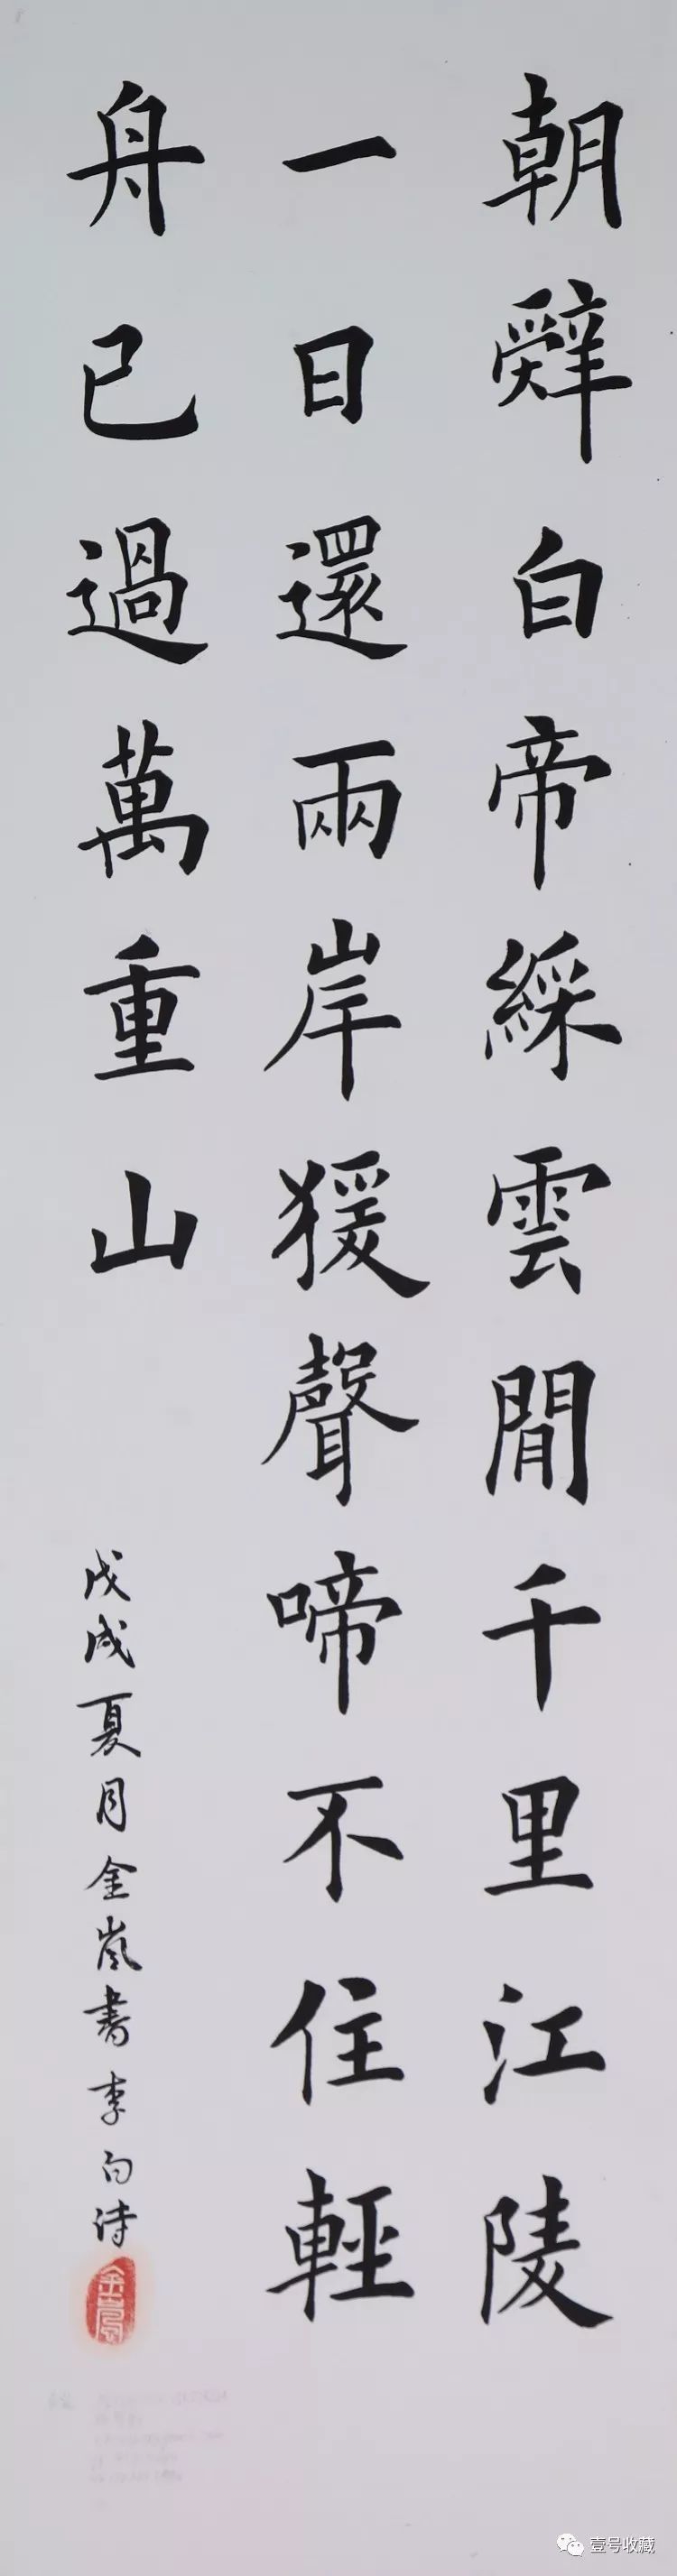 朝辤白帝綵雲間千里江陵
一日還兩岸猨聲啼不住輕
舟已過萬重山
戊戌夏月金嵐書李白诗
壹号收藏